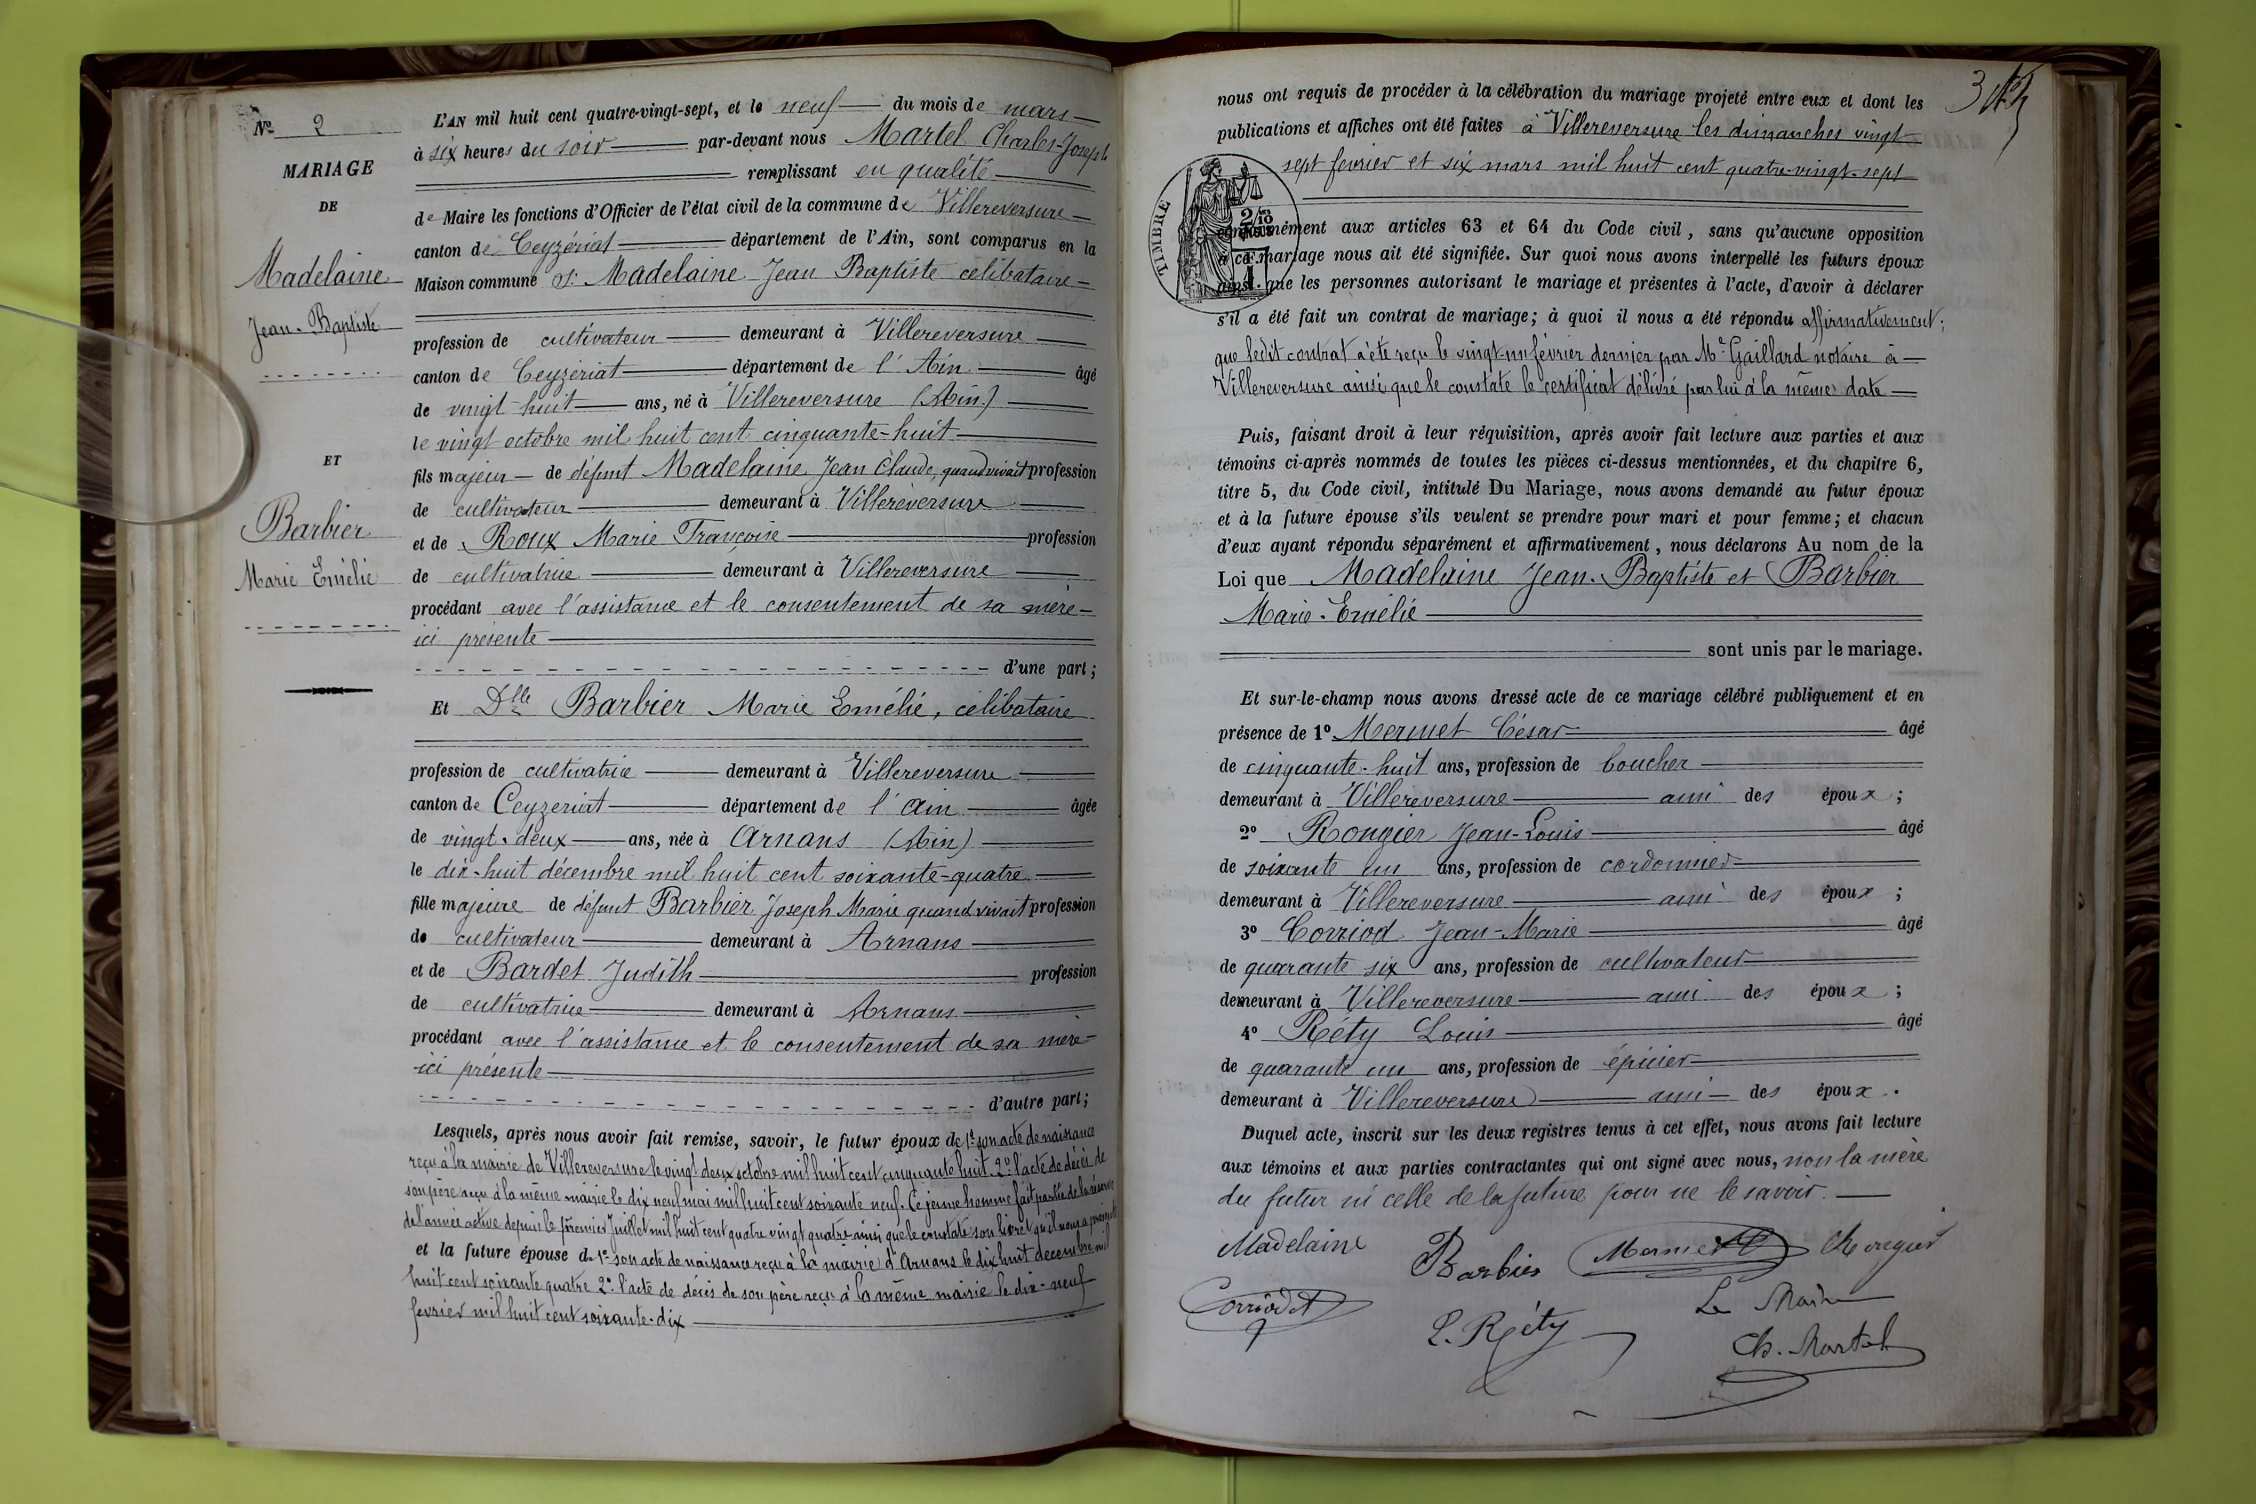 Nº 2
MARIAGE
DE
Madelaine
Jean-Baptiste
ET
Barbier
Marie Emélie
L'AN mil huit cent quatre-vingt-sept, et le neuf du mois de mars
à six heures du soir par-devant nous Martel Charles-Joseph
remplissant en qualité
de Maire les fonctions d'Officier de l'état civil de la commune de Villereversure
canton de Ceyzériat département de l'Ain, sont comparus en la
Maison commune Sr Madelaine Jean Baptiste célibataire
profession de cultivateur demeurant à Villereversure
canton de Ceyzériat département de l'Ain âgé
de vingt-huit ans, né à Villereversure (Ain)
le vingt octobre mil huit cent cinquante-huit
fils majeur de défunt Madelaine Jean Claude, quand vivait profession
de cultivateur demeurant à Villereversure
et de Roux Marie Françoise profession
de cultivatrice demeurant à Villereversure
procédant avec l'assistance et le consentement de sa mère
ici présente
d'une part;
Et Dlle Barbier Marie Emélie, célibataire
profession de cultivatrice demeurant à Villereversure
canton de Ceyzeriat département de l'Ain âgée
de vingt-deux ans, née à Arnans (Ain)
le dix-huit décembre mil huit cent soixante-quatre
fille majeure de défunt Barbier Joseph Marie quand vivait profession
de cultivateur demeurant à Arnans
et de Bardet Judith profession
de cultivatrice demeurant à Arnans
procédant avec l'assistance et le consentement de sa mère
ici présente
d'autre part;
Lesquels, après nous avoir fait remise, savoir, le futur époux de 1º son acte de naissance
reçu à la mairie de Villereversure le vingt deux octobre mil huit cent cinquante huit. 2º l'acte de décès de
son père reçu à la même mairie le dix neuf mai mil huit cent soixante neuf. Ce jeune homme fait partie de la réserve
de l'armée active depuis le premier Juillet mil huit cent quatre vingt quatre ainsi que le constate son livret qu'il nous a présenté
et la future épouse de 1º son acte de naissance reçu à la mairie d'Arnans le dix huit decembre mil
huit cent soixante quatre 2º l'acte de décès de son père reçu à la même mairie le dix-neuf
fevrier mil huit cent soixante-dix
3
nous ont requis de procéder à la célébration du mariage projeté entre eux et dont les
publications et affiches ont été faites à Villereversure les dimanches vingt
sept fevrier et six mars mil huit cent quatre-vingt-sept
TIMBRE
2/10
conformément aux articles 63 et 64 du Code civil, sans qu'aucune opposition
à ce mariage nous ait été signifiée. Sur quoi nous avons interpellé les futurs époux
ainsi que les personnes autorisant le mariage et présentes à l'acte, d'avoir à déclarer
s'il a été fait un contrat de mariage; à quoi il nous a été répondu affirmativement;
que ledit contrat a été reçu le vingt-un février dernier par Me Gaillard notaire à
Villereversure ainsi que le constate le certificat délivré par lui à la même date
Puis, faisant droit à leur réquisition, après avoir fait lecture aux parties et aux
témoins ci-après nommés de toutes les pièces ci-dessus mentionnées, et du chapitre 6,
titre 5, du Code civil, intitulé Du Mariage, nous avons demandé au futur époux
et à la future épouse s'ils veulent se prendre pour mari et pour femme; et chacun
d'eux ayant répondu séparément et affirmativement, nous déclarons Au nom de la
Loi que Madelaine Jean-Baptiste et Barbier
Marie-Emélie
sont unis par le mariage.
Et sur-le-champ nous avons dressé acte de ce mariage célébré publiquement et en
présence de 1º Mermet César âgé
de cinquante-huit ans, profession de boucher
demeurant à Villereversure ami des époux;
2º Rougier Jean-Louis âgé
de soixante un ans, profession de cordonnier
demeurant à Villereversure ami des époux;
3º Corriod Jean-Marie âgé
de quarante six ans, profession de cultivateur
demeurant à Villereversure ami des époux;
4º Réty Louis âgé
de quarante un ans, profession de épicier
demeurant à Villereversure ami des époux.
Duquel acte, inscrit sur les deux registres tenus à cet effet, nous avons fait lecture
aux témoins et aux parties contractantes qui ont signé avec nous, non la mère
du futur ni celle de la future pour ne le savoir.
Madelaine Barbier Mermet
Corriod
L. Réty
Le Maire
Ch. Martel